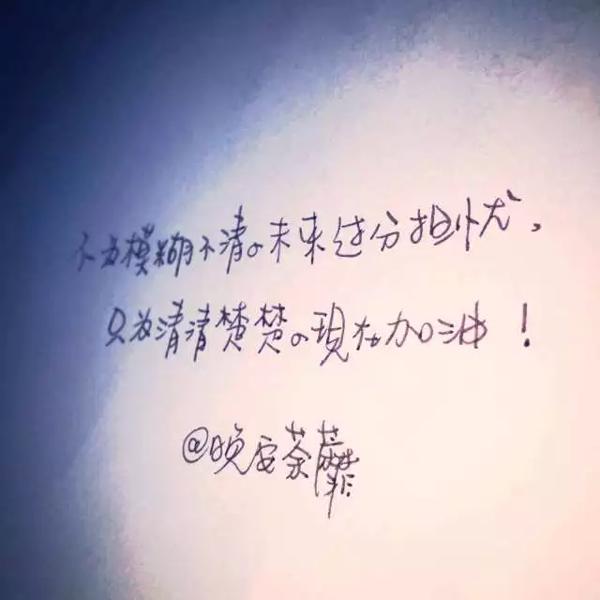 不为模糊不清の未来过分担忧,
只为清清楚楚の現在加油!
@晚安荼蘼